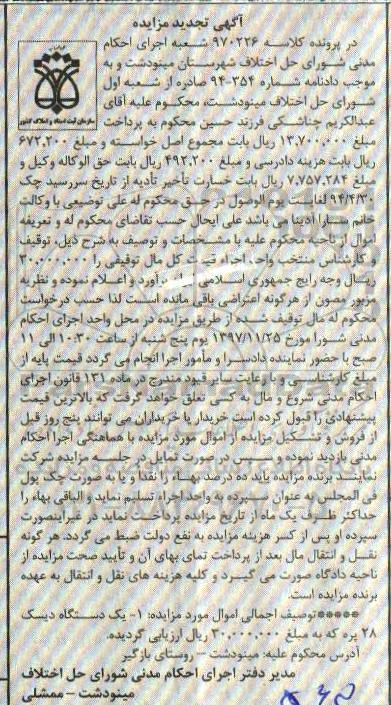 آگهی تجدید مزایده
در پرونده کلاسه ۹۷۰۲۲۶ شعبه اجرای احکام
مدنی شورای حل اختلاف شهرستان مینودشت و به
موجب دادنامه شماره ۳۵۴-۹۴ صادره از شعبه اول
شورای حل اختلاف مینودشت، محکوم علیه آقای
عبدالکریم چناشکی فرزند حسین محکوم به پرداخت
سازمان ثبت اسناد و املاک کشور
مبلغ ۱۳,۷۰۰,۰۰۰ ریال بابت مجموع اصل خواسته و مبلغ ۶۷۲,۲۰۰
ریال بابت هزینه دادرسی و مبلغ ۴۹۲,۲۰۰ ریال بابت حق الوکاله وکیل و
مبلغ ۷,۷۵۷,۲۸۴ ریال بابت خسارت تأخیر تأدیه از تاریخ سررسید چک
۹۴/۴/۳۰ لغایت یوم الوصول در حق محکوم له علی توضیعی با وکالت
خانم سارا آدینا می باشد علی ایحال حسب تقاضای محکوم له و تعریفه
اموال از ناحیه محکوم علیه با مشخصات و توصیف به شرح ذیل، توقیف
و کارشناس منتخب واحد اجراء قیمت کل مال توقیفی را ۳۰۰۰۰۰۰۰
ریال وجه رایج جمهوری اسلامی برآورد و اعلام نموده و نظریه
مزبور مصون از هرگونه اعتراضی باقی مانده است لذا حسب درخواست
محکوم له مال توقیف شده از طریق مزایده در محل واحد اجرای احکام
مدنی شورا مورخ ۱۳۹۷/۱۱/۲۵ یوم پنج شنبه از ساعت ۱۰:۳۰ الی ۱۱
صبح با حضور نماینده دادسرا و مأمور اجرا انجام می گردد قیمت پایه از
مبلغ کارشناسی و با رعایت سایر قیود مندرج در ماده ۱۳۱ قانون اجرای
احکام مدنی شروع و مال به کسی تعلق خواهد گرفت که بالاترین قیمت
پیشنهادی را قبول کرده است خریدار یا خریداران می توانند پنج روز قبل
از فروش و تشکیل مزایده از اموال مورد مزایده با هماهنگی اجرا احکام
مدنی بازدید نموده و سپس در صورت تمایل در جلسه مزایده شرکت
نمایند. برنده مزایده باید ده درصد بهاء را نقدا و یا به صورت چک پول
فی المجلس به عنوان سپرده به واحد اجراء تسلیم نماید و الباقی بهاء را
حداکثر ظرف یک ماه از تاریخ مزایده پرداخت نماید در غیراینصورت
سپرده او پس از کسر هزینه مزایده به نفع دولت ضبط می گردد. هر گونه
نقل و انتقال مال بعد از پرداخت تمای بهای آن و تأیید صحت مزایده از
ناحیه دادگاه صورت می گیرد و کلیه هزینه های نقل و انتقال به عهده
برنده مزایده است.
*****توصیف اجمالی اموال مورد مزایده: ۱- یک دستگاه دیسک
۲۸ پره که به مبلغ ۳۰,۰۰۰,۰۰۰ ریال ارزیابی گردیده.
آدرس محکوم علیه: مینودشت - روستای بازگیر
مدیر دفتر اجرای احکام مدنی شورای حل اختلاف
مینودشت - ممشلی